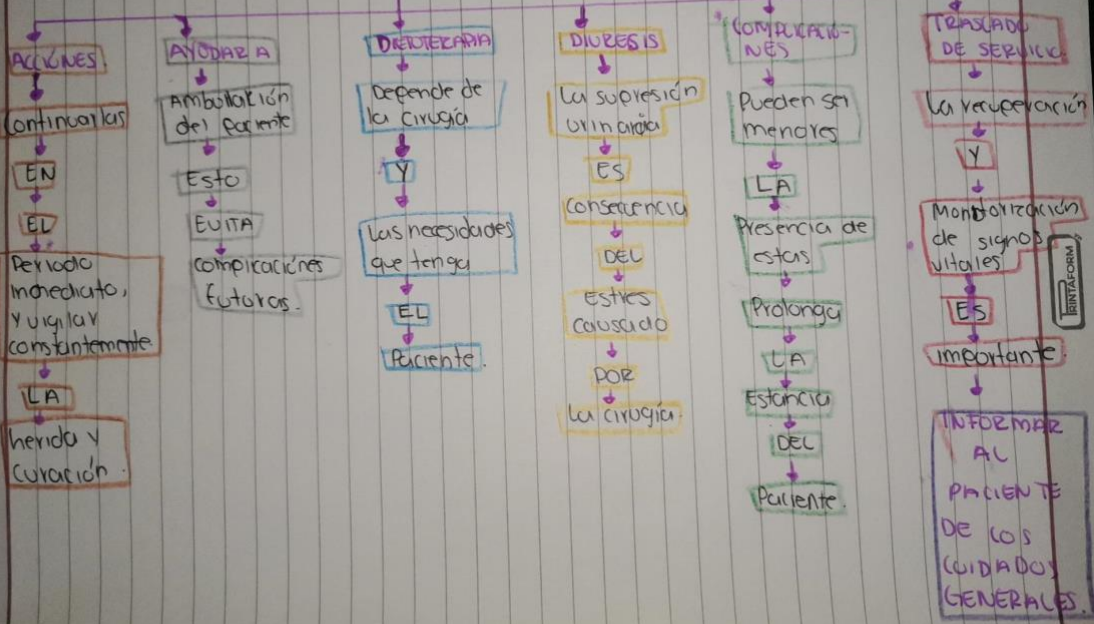 ACCIÓNES.
Continuarlas
EN
EL
Periodo
inmediato,
y vigilar
constantemente
LA
herida y
curación.
AYUDAR A
Ambulación
del paciente
Esto
EVITA
complicaciónes
futuras.
DIETOTERAPIA
Depende de
la cirugía
Y
Las necesidades
que tenga
EL
Paciente.
DIURESIS
La supresión
urinaria
ES
consecuencia
DEL
Estres
causado
POR
La cirugía.
COMPLICACIO-
NES
Pueden ser
menores
LA
Presencia de
estas
Prolonga
LA
Estancia
DEL
Paciente.
TRASLADO
DE SERVICIO.
La recuperación
Y
Monitorización
de signos
vitales
ES
importante.
INFORMAR
AL
PACIENTE
DE LOS
CUIDADOS
GENERALES.
PRINTAFORM